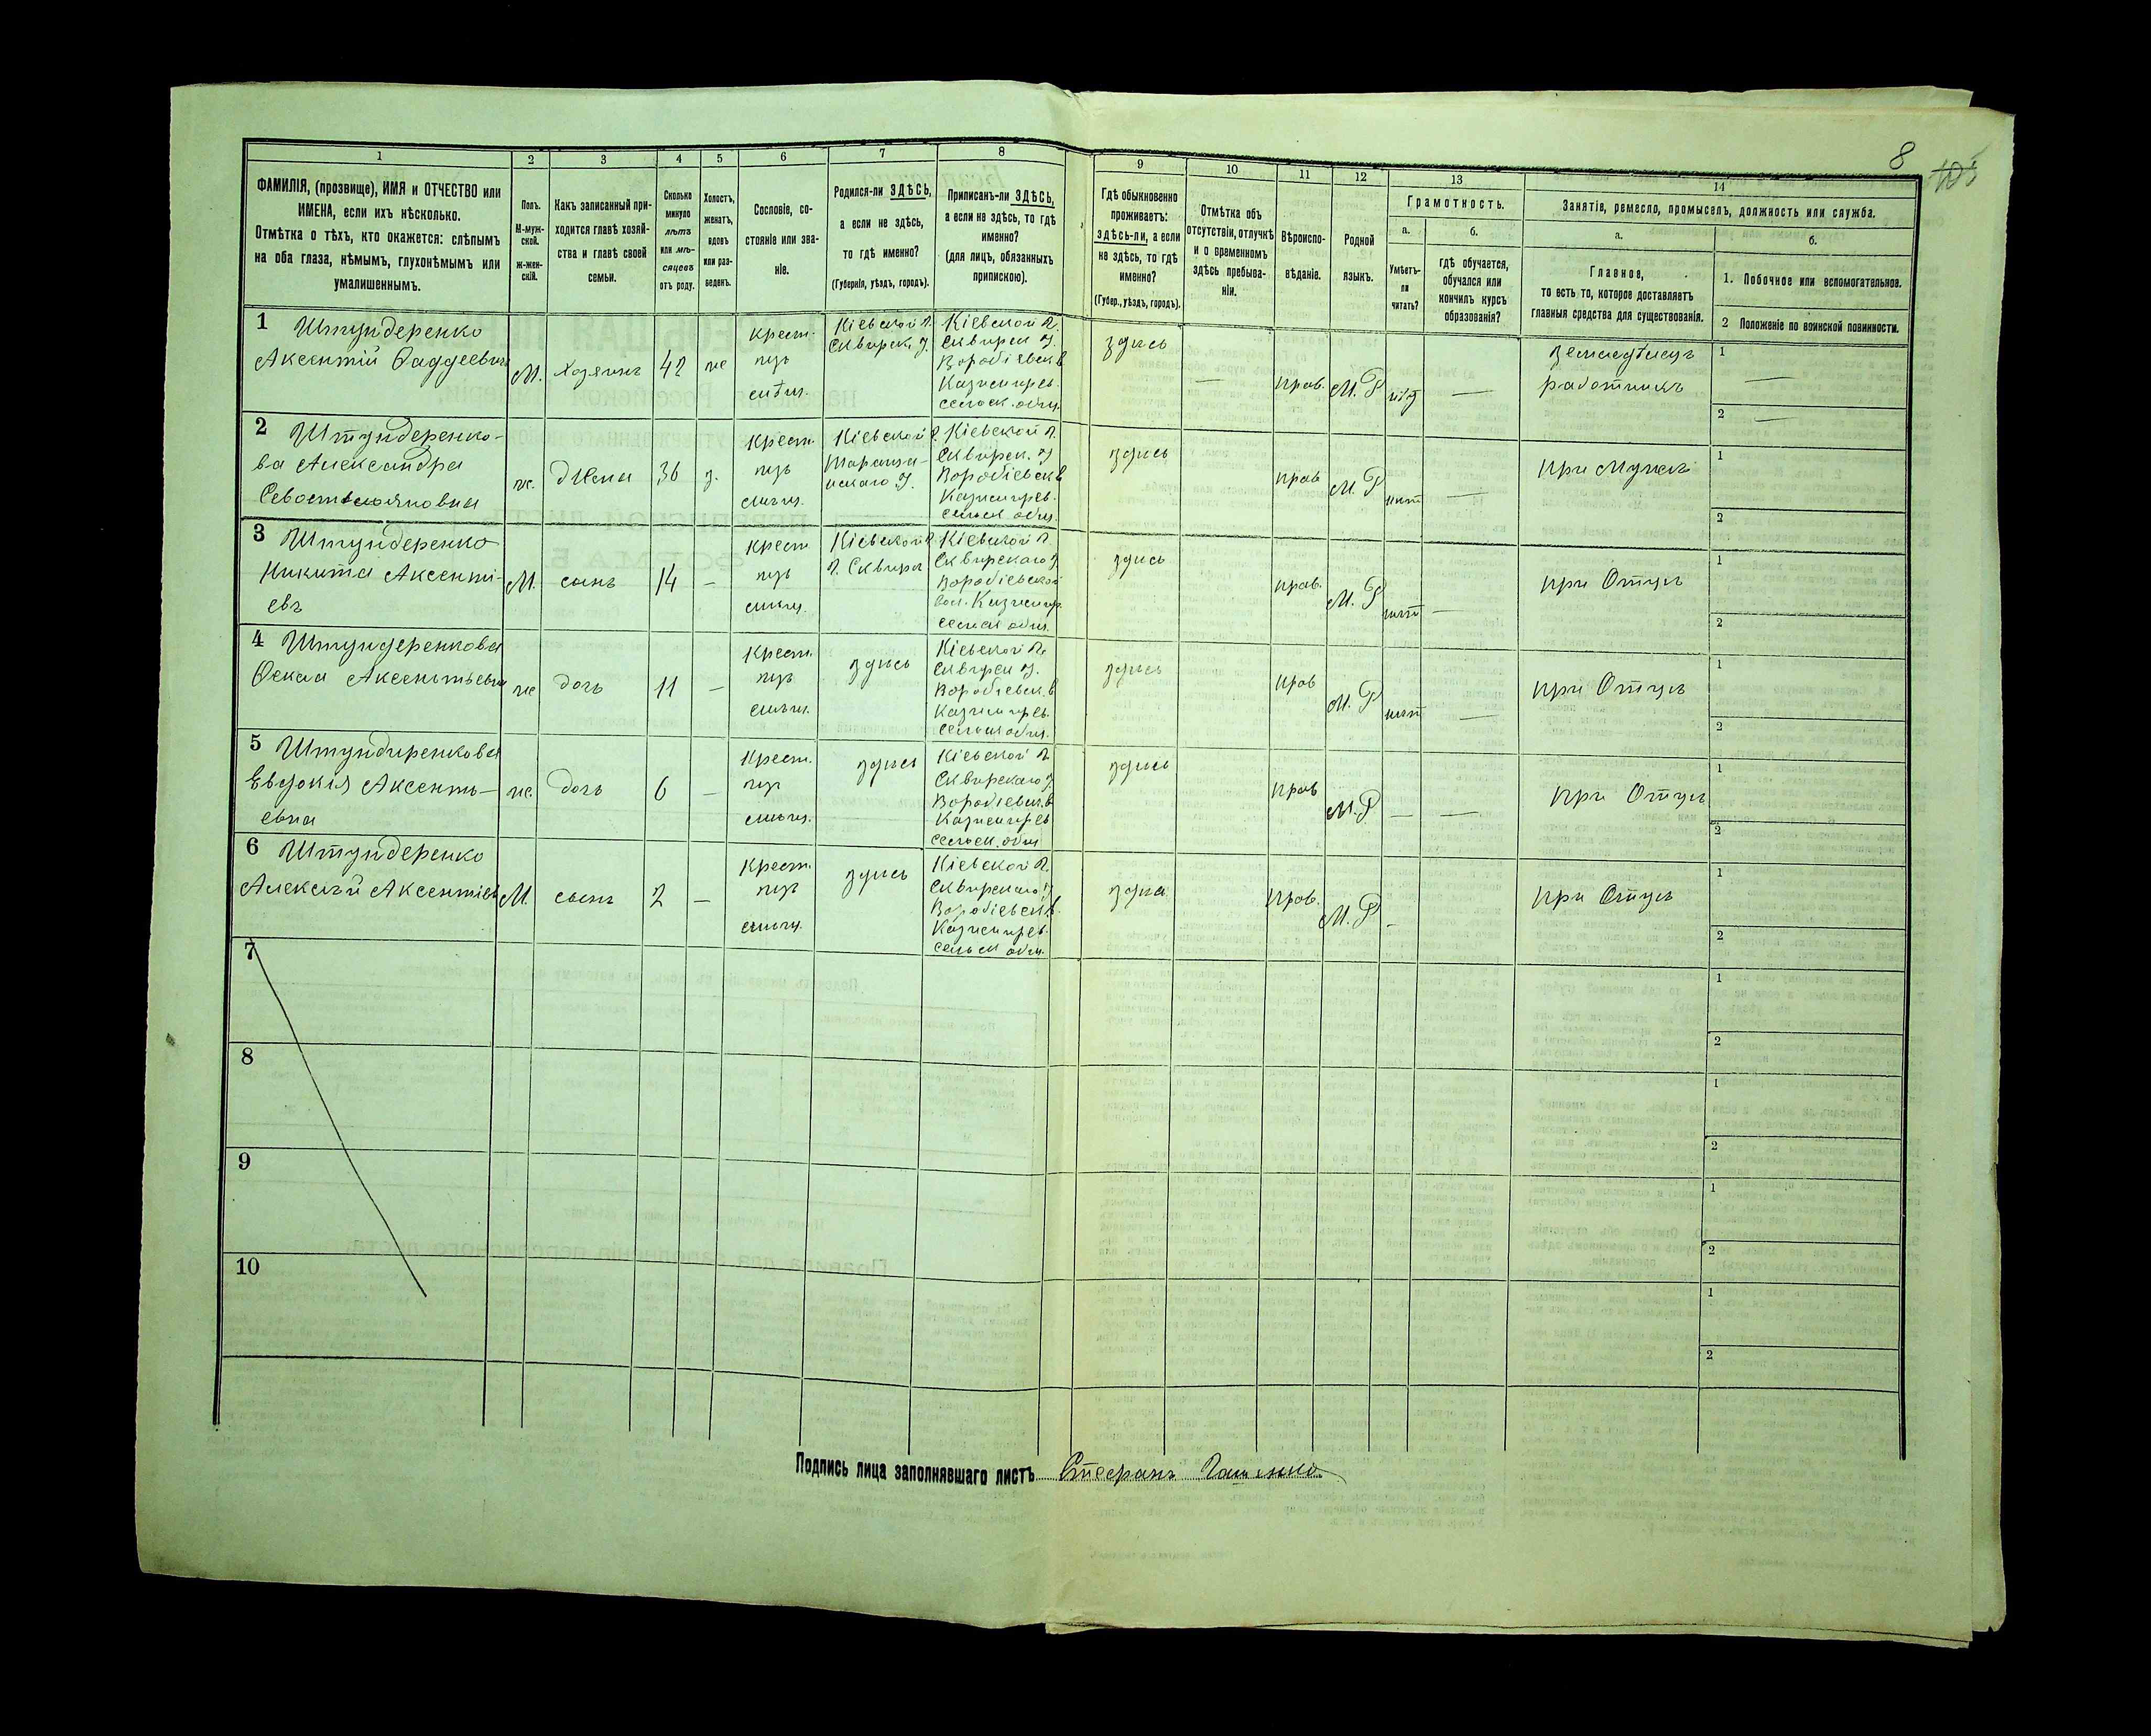 8
105
1
2
3
4
5
6
7
8
9
10
11
12
13
14
ФАМИЛІЯ, (прозвище), ИМЯ и ОТЧЕСТВО или
ИМЕНА, если ихъ нѣсколько.
Отмѣтка о тѣхъ, кто окажется: слѣпымъ
на оба глаза, нѣмымъ, глухонѣмымъ или
умалишеннымъ.
Полъ.
М-муж-
ской.
ж-жен-
скій.
Какъ записанный при-
ходится главѣ хозяй-
ства и главѣ своей
семьи.
Сколько
минуло
лѣтъ
или мѣ-
сяцевъ
отъ роду.
Холостъ,
женатъ,
вдовъ
или раз-
веденъ.
Сословіе, со-
стояніе или зва-
ніе.
Родился-ли ЗДѢСЬ,
а если не здѣсь,
то гдѣ именно?
(Губернія, уѣздъ, городъ).
Приписанъ-ли ЗДѢСЬ,
а если не здѣсь, то гдѣ
именно?
(для лицъ, обязанныхъ
припискою).
Гдѣ обыкновенно
проживаетъ:
здѣсь-ли, а если
не здѣсь, то гдѣ
именно?
(Губер., уѣздъ, городъ).
Отмѣтка объ
отсутствіи, отлучкѣ
и о временномъ
здѣсь пребыва-
ніи.
Вѣроиспо-
вѣданіе.
Родной
языкъ.
Грамотность.
а.
Умѣетъ-
ли
читать?
б.
гдѣ обучается,
обучался или
кончилъ курсъ
образованія?
Занятіе, ремесло, промыселъ, должность или служба.
а.
Главное,
то есть то, которое доставляетъ
главныя средства для существованія.
б.
1. Побочное или вспомогательное.
2 Положеніе по воинской повинности.
1 Штундеренко
Аксентій Фаддеевичъ
М.
хозяинъ
42
же
Крест.
изъ
Кіевской г.
Сквирск. у.
Кіевской г.
Сквирск у.
Воробіевск. в
Казимирев.
сельск. общ.
здѣсь
—
прав.
М. Р
нѣт
—
земледѣлецъ
работникъ
1 —
2 —
2 Штундеренко-
ва Александра
Севостьяновна
ж.
жена
36
з.
Крест
изъ
Кіевской г.
Таращан-
скаго у.
Кіевской г.
Сквирск. у
Воробіевск в
Казимирев.
сельск общ.
здѣсь
прав
М. Р
нѣт
—
при Мужѣ
1
2
3 Штундеренко
Никита Аксенті-
евъ
М.
сынъ
14
—
Крест
изъ
Кіевской г.
г. Сквира
Кіевской г.
Сквирскаго у
Воробіевской
вол. Казимир.
сельск общ.
здѣсь
прав.
М. Р
нѣт
—
при Отцѣ
1
2
4 Штундеренкова
Аксентьевна
же
дочь
11
—
Крест.
изъ
здѣсь
Кіевской г.
Сквирск у.
Воробіевск. в
Казимирев.
сельск общ.
здѣсь
прав
М. Р
нѣт
—
при Отцѣ
1
2
5 Штундиренкова
Евдокія Аксенть-
евна
же.
дочь
6
—
Крест.
изъ
здѣсь
Кіевской г.
Сквирскаго у
Воробіевск. в
Казимирев
сельск. общ
здѣсь
прав
М. Р
—
—
при Отцѣ
1
2
6 Штундеренко
Алексѣй Аксентіевъ
М.
сынъ
2
—
Крест.
изъ
здѣсь
Кіевской г.
Сквирскаго у
Воробіевск в.
Казимирев.
сельск общ.
здѣсь
прав.
М. Р
-
при Отцѣ
1
2
7
1
2
8
1
2
9
1
2
10
1
2
Подпись лица заполнявшаго листъ Стефанъ